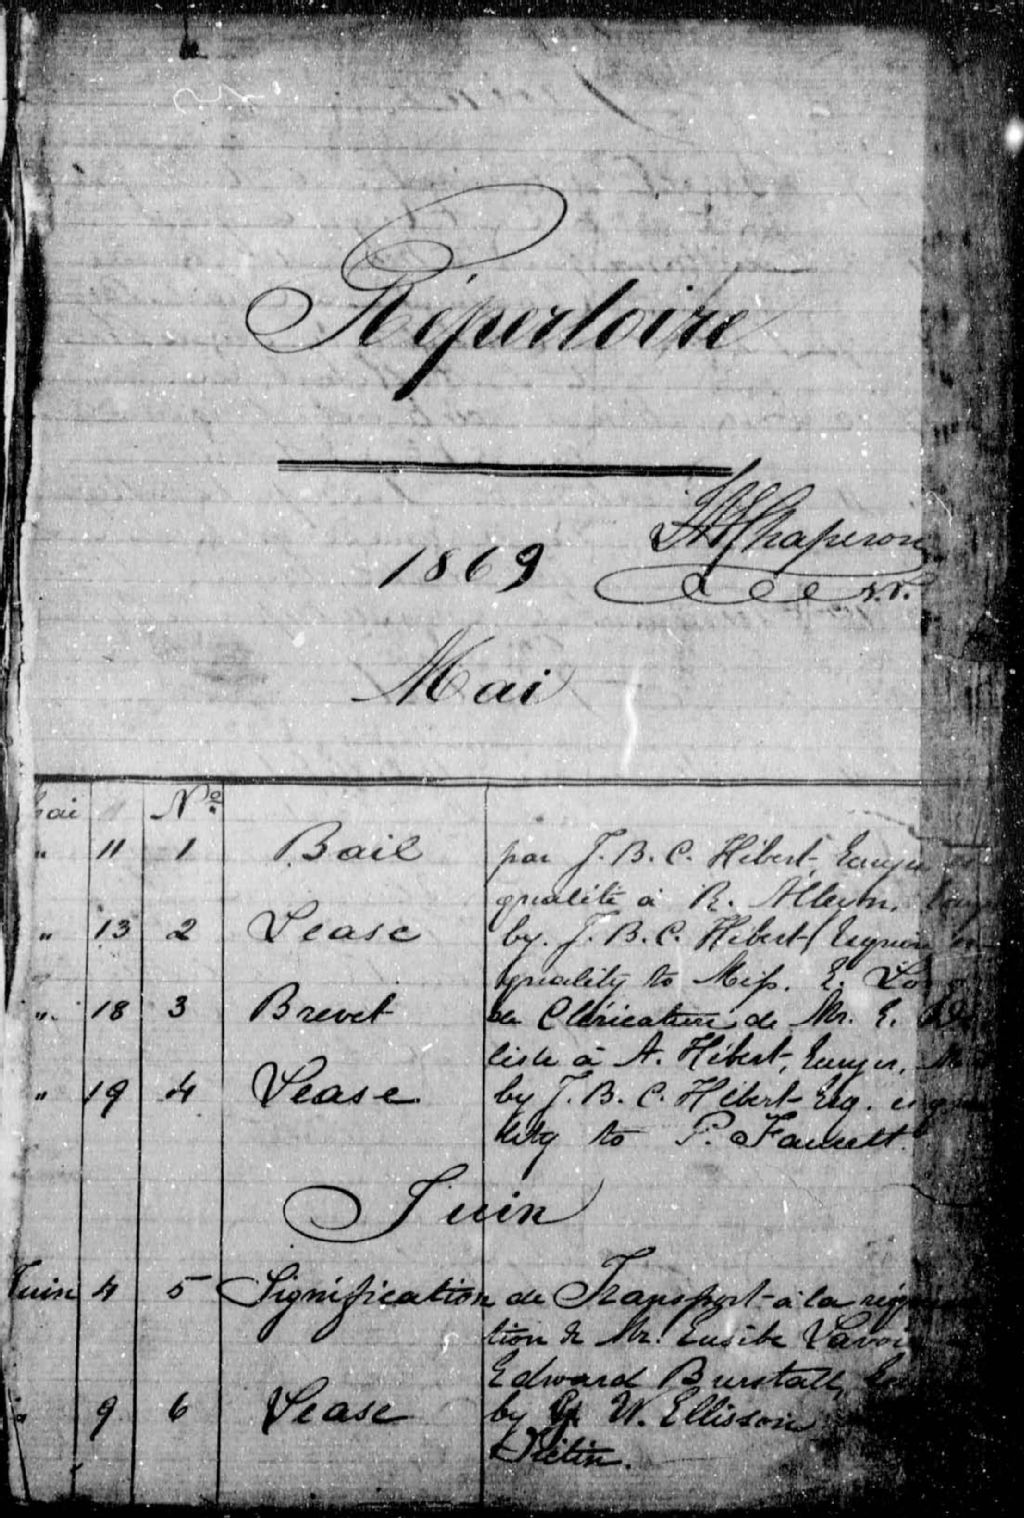 Répertoire
1869
Chaperon
N.P.
Mai
Mai Nº
" 11 1 Bail par J. B. C. Hébert, Ecuyer
qualité à R. Alleyn,
" 13 2 Lease by. J. B. C. Hébert, Esquire
quality to Miss. E.
" 18 3 Brevet de Cléricature de Mr. E.
liste à A. Hébert, Ecuyer,
" 19 4 Lease by J. B. C. Hébert Esq.
lity to P.
Juin
Juin 4 5 Signification de Transport à la
tion de Mr. Eusèbe Lavoie
Edward Burstall,
" 9 6 Lease by W. Ellisson